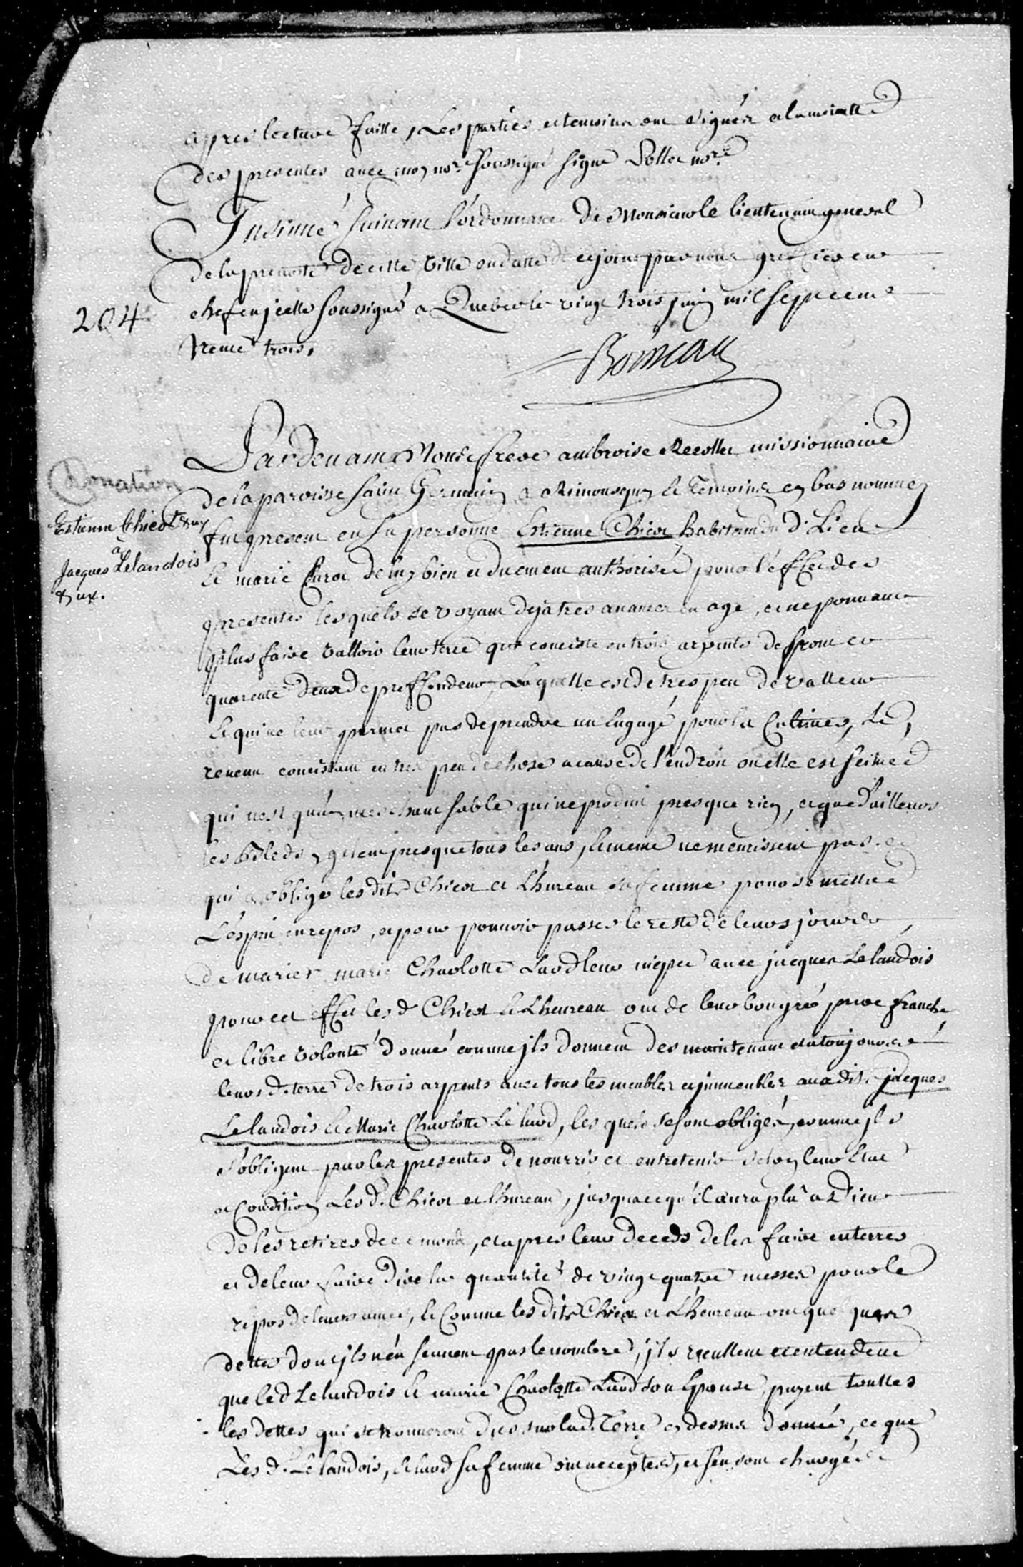 apres lecture faitte, Les parties et temoins ont signés a la minutte
des presentes avec moy nore soussigné signé Pollet nore
Insinué suivant l'ordonnance de Monsieur le lieutenant general
de la prevosté de cette ville en datte de ce jour par nous greffier en
204
chef en jcelle soussigné a Quebec le vingt trois juin mil sept cens
trente trois.
Boisseau
Donation
Estienne Chiest & ux
a
Jacques Lelandois
& ux.
Pardevant Nous frere ambroise Recollet missionnaire
de la paroisse saint Germain a Rimousquy Et temoins cy bas nommes
fut present en sa personne Estienne Chiest habitant du d. Lieu
Et marie luy bien et duement authorisée pour l'effet des
presentes lesquels se voyant deja tres avancez en age, et ne pouvant
plus faire valloir leur terre qui consiste en trois arpents de front et
quarente deux de proffondeur Laquelle est de tres peu de valleur
Et qui ne leur permet pas de prendre un Engagé pour la Cultiver, Le
revenu consistant en tres peu de chose a cause de l'endroit ou elle est scituée
qui n'est qu'un mechant sable qui ne produit presque rien, et que d'ailleurs
les bleds y gelent presque tous les ans, et meme ne meurissent pas, ce
qui a obligé les dits Chiest et Lhureau sa femme pour se mettre
L'esprit en repos, et pour pouvoir passer le reste de leurs jours
de marier marie Charlotte leur niepce avec jacques Lelandois
pour cet effet les d. Chiest et Lheureau ont de leur bon gré, pure franche
et libre volonté donné comme jls donnent des maintenant et a toujours
leurs d. terre de trois arpents avec tous les meubles et jmmeubles aux dits jacques
Lelandois et Marie Charlotte, les quels se sont obligés, comme jls
s'obligent par les presentes de nourrir et entretenir selon leur Etat
et Condition Les d. Chiest et lhureau, jusqua ce qu'il aura plu a Dieu
de les retirer de ce monde, et apres leur deceds de les faire enterrer
et de leur faire dire la quantité de vingt quatre messes pour le
repos de leurs ames, et Comme les dits Chiest et Lheureau ont quelques
dettes dont jls n'en scavent pas le nombre, jls veullent et entendent
que le d. Lelandois Et marie Charlotte son Epouse payent touttes
les dettes qui se trouveront dues sur la d. Terre donnée, ce que
Les d. Lelandois, et sa femme ont accepté, et s'en sont chargés